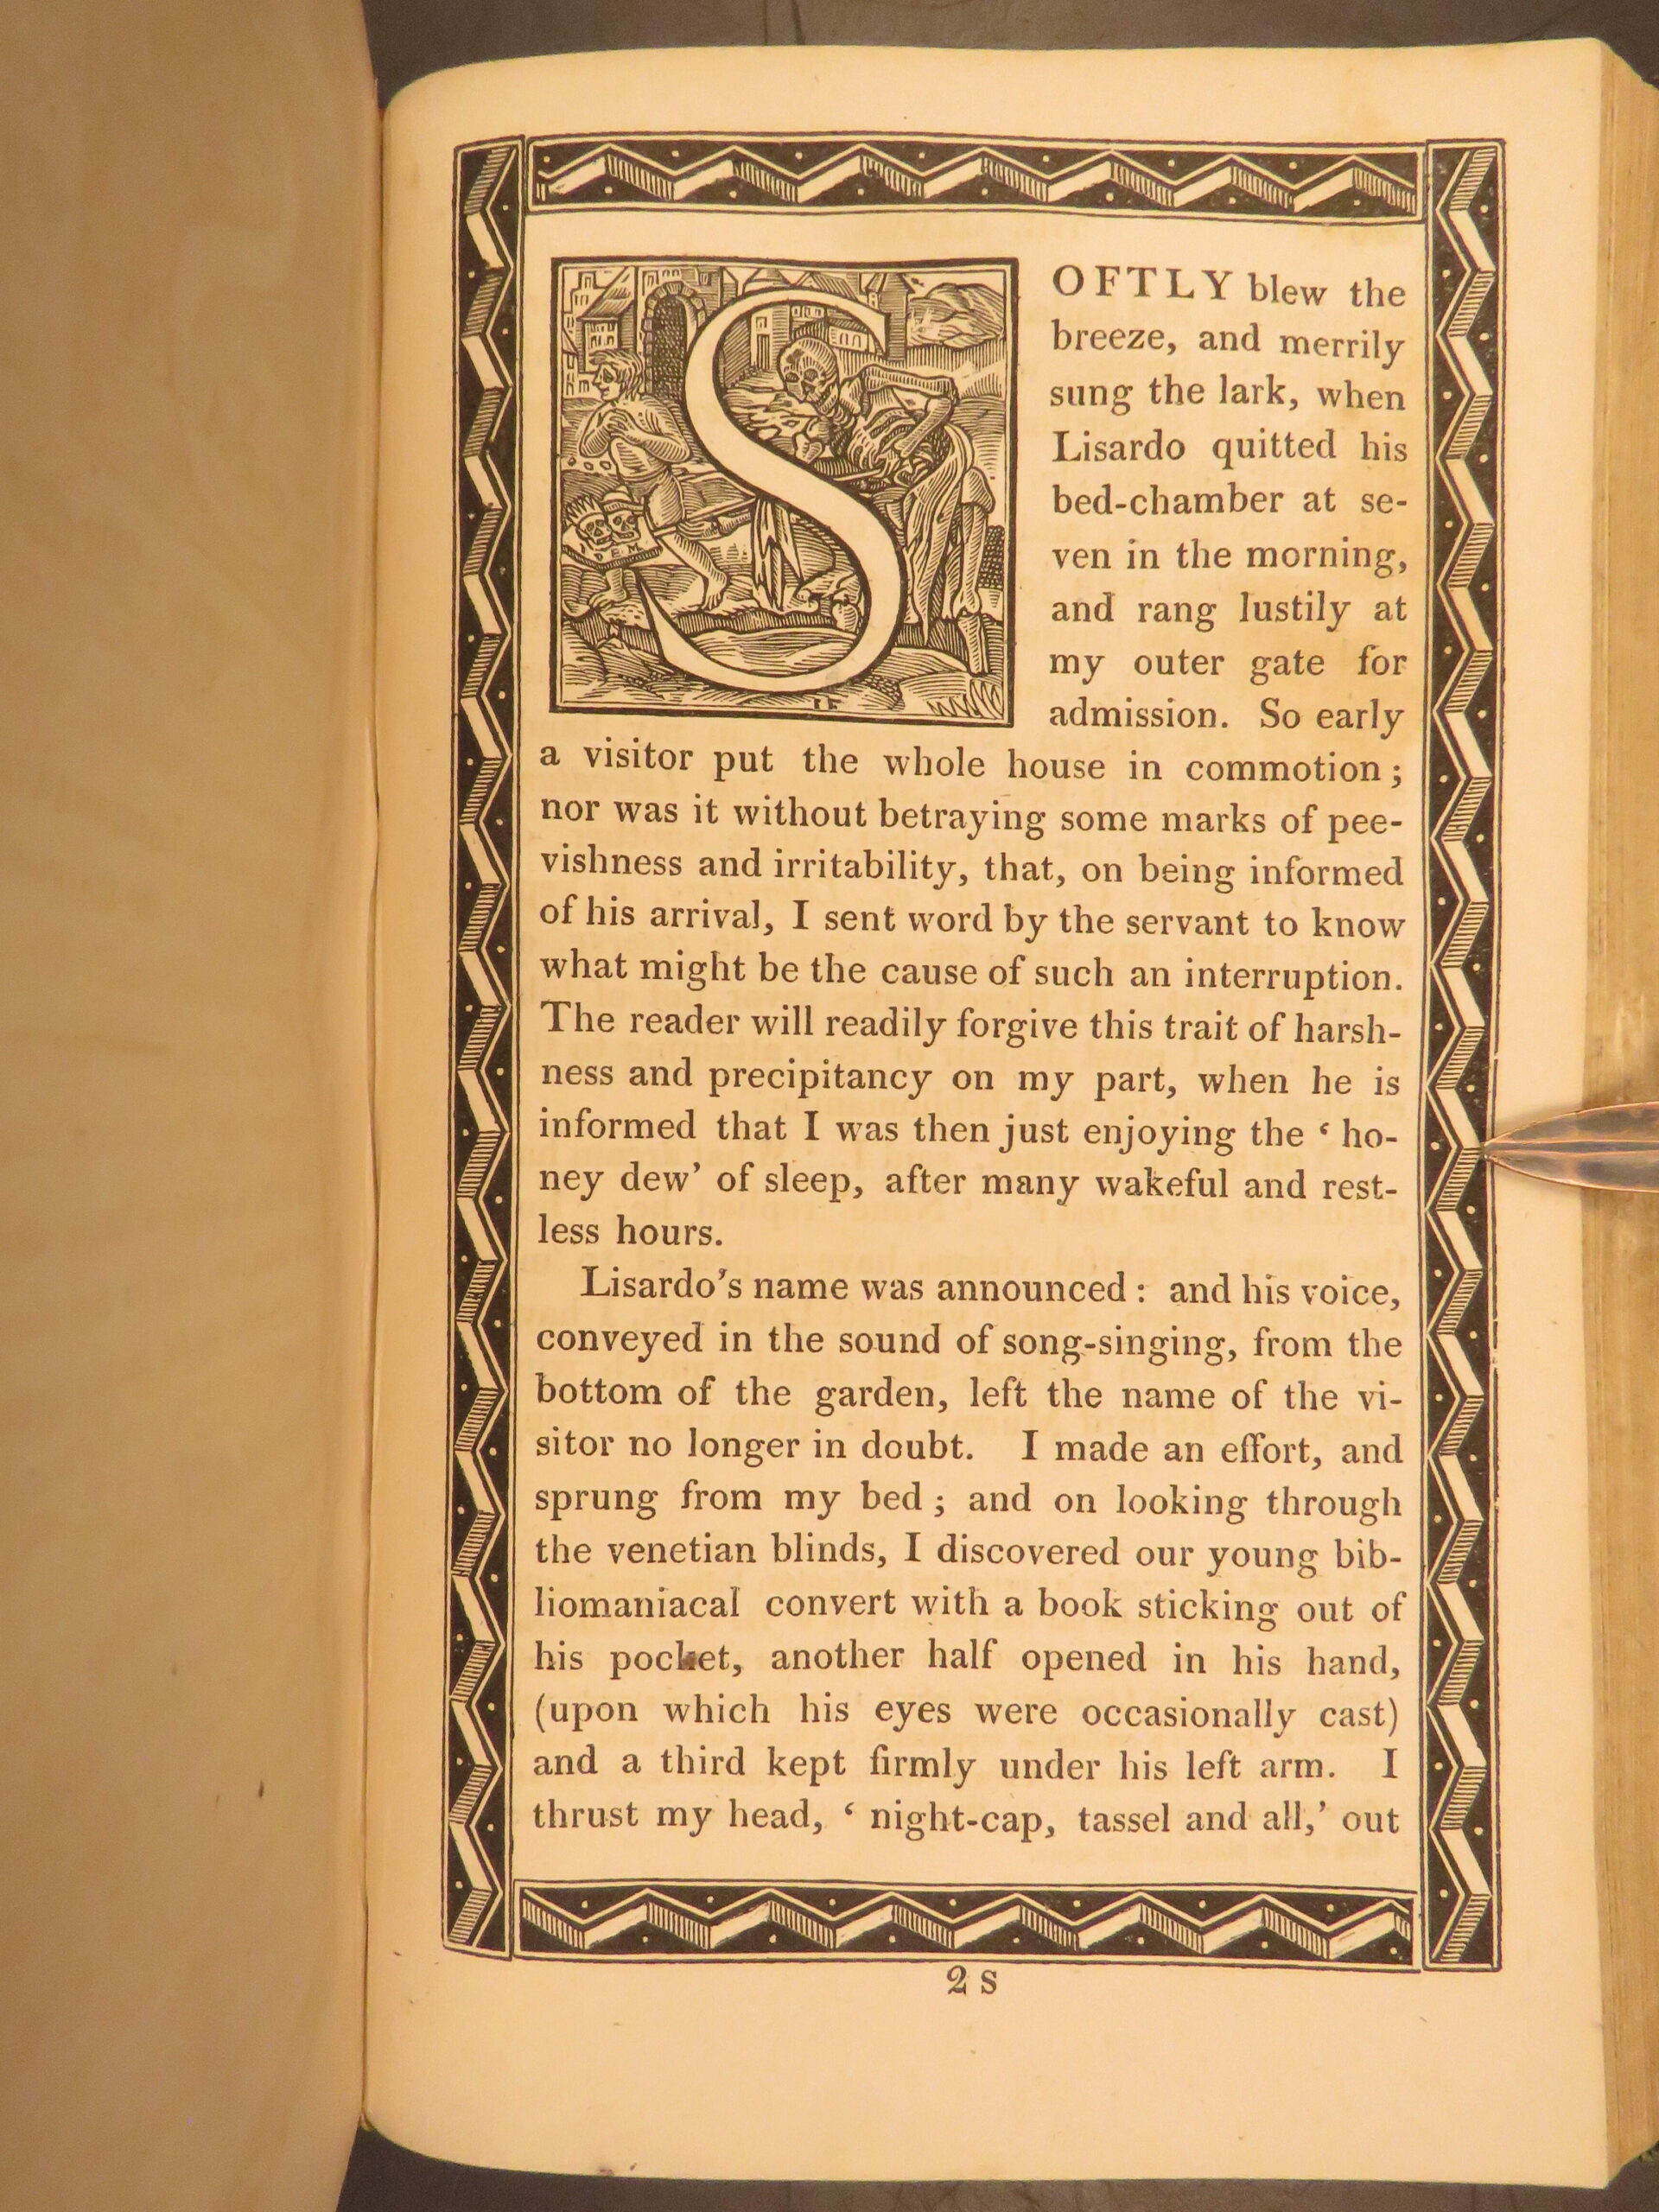 SOFTLY blew the
breeze, and merrily
sung the lark, when
Lisardo quitted his
bed-chamber at se-
ven in the morning,
and rang lustily at
my outer gate for
admission. So early
a visitor put the whole house in commotion;
nor was it without betraying some marks of pee-
vishness and irritability, that, on being informed
of his arrival, I sent word by the servant to know
what might be the cause of such an interruption.
The reader will readily forgive this trait of harsh-
ness and precipitancy on my part, when he is
informed that I was then just enjoying the ‘ ho-
ney dew’ of sleep, after many wakeful and rest-
less hours.
Lisardo’s name was announced : and his voice,
conveyed in the sound of song-singing, from the
bottom of the garden, left the name of the vi-
sitor no longer in doubt. I made an effort, and
sprung from my bed ; and on looking through
the venetian blinds, I discovered our young bib-
liomaniacal convert with a book sticking out of
his pocket, another half opened in his hand,
(upon which his eyes were occasionally cast)
and a third kept firmly under his left arm. I
thrust my head, ‘ night-cap, tassel and all,’ out
2 S